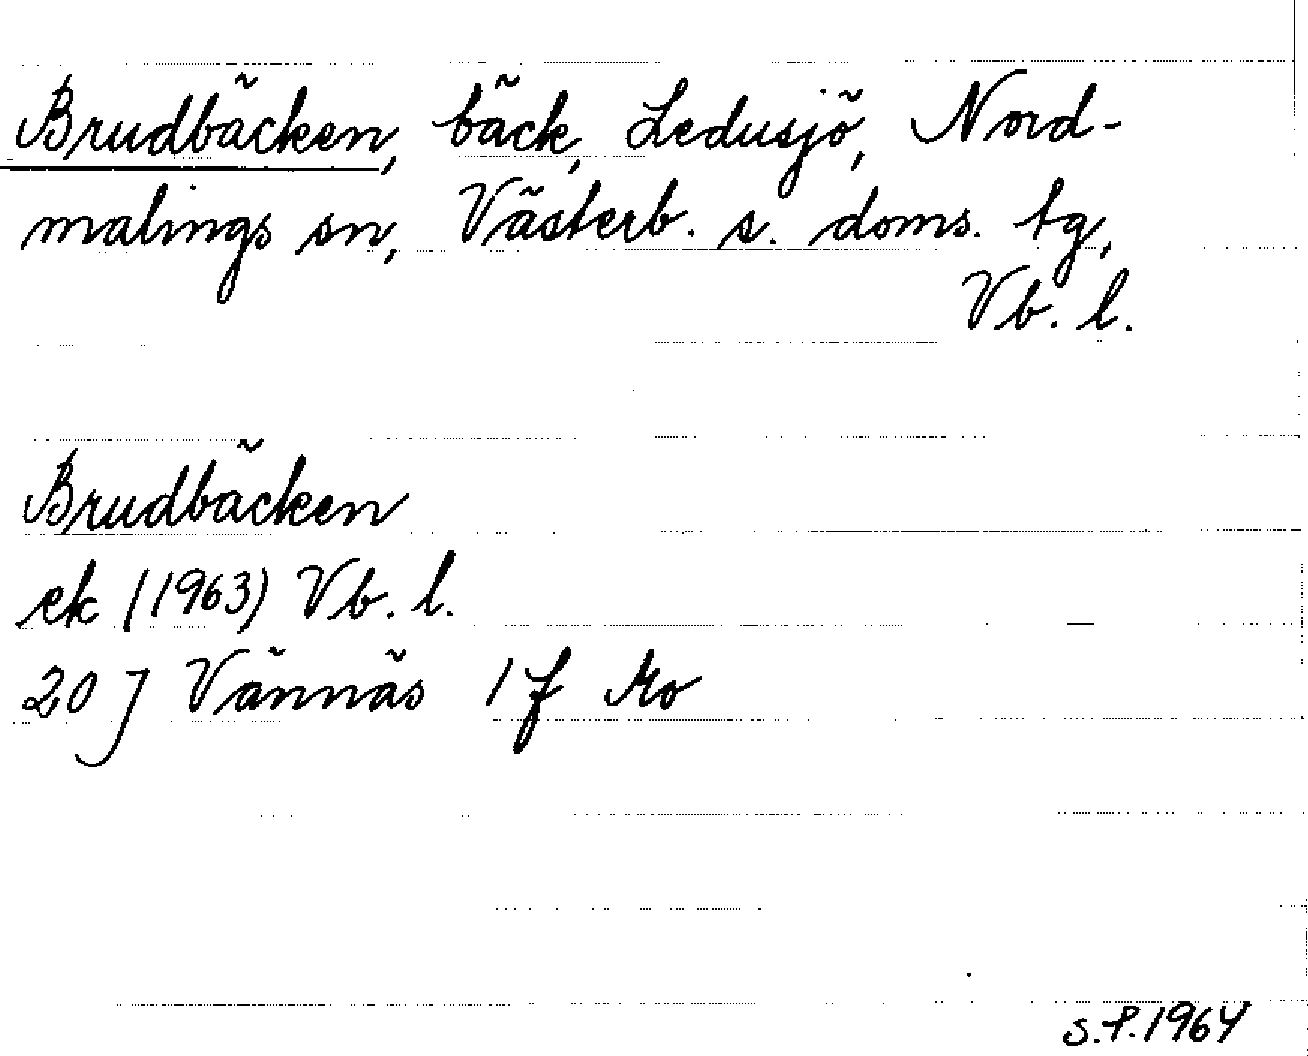 Brudbäcken, bäck, Ledusjö, Nord-
malings sn, Västerb. s. doms. tg,
Vb. l.
Brudbäcken
ek (1963) Vb. l.
20 J Vännäs 1 f Mo
S.P. 1964